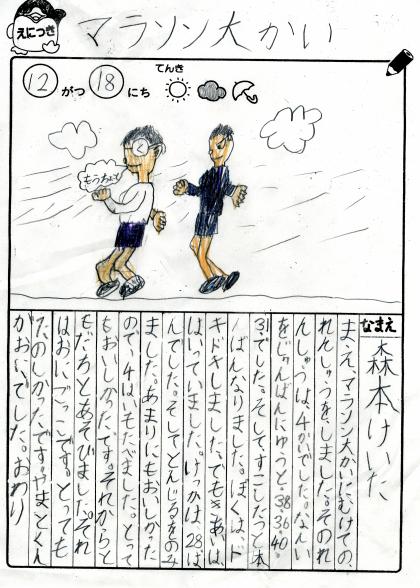 えにっき
マラソン大かい
12がつ18にち
てんき
もうちょっと
なまえ
森本けいた
まえ、マラソン大かいにむけての、
れんしゅうを、しました。そのれ
んしゅうは、4かいでした。なんい
をじゅんばんにゆうと、38、36、40、
31でした。そして、すこしたつと本
ばんなりました。ぼくは、ド
キドキしました。でもきあいは、
はいっていました。けっかは28ば
んでした。そしてとんじるをのみ
ました。あまりにもおいしかった
ので、4はいもたべました。とって
もおいしかったです。それからと
もだちとあそびました。それ
はおにごっこです。とっても
たのしかったです。やまとくん
がおにでした。おわり